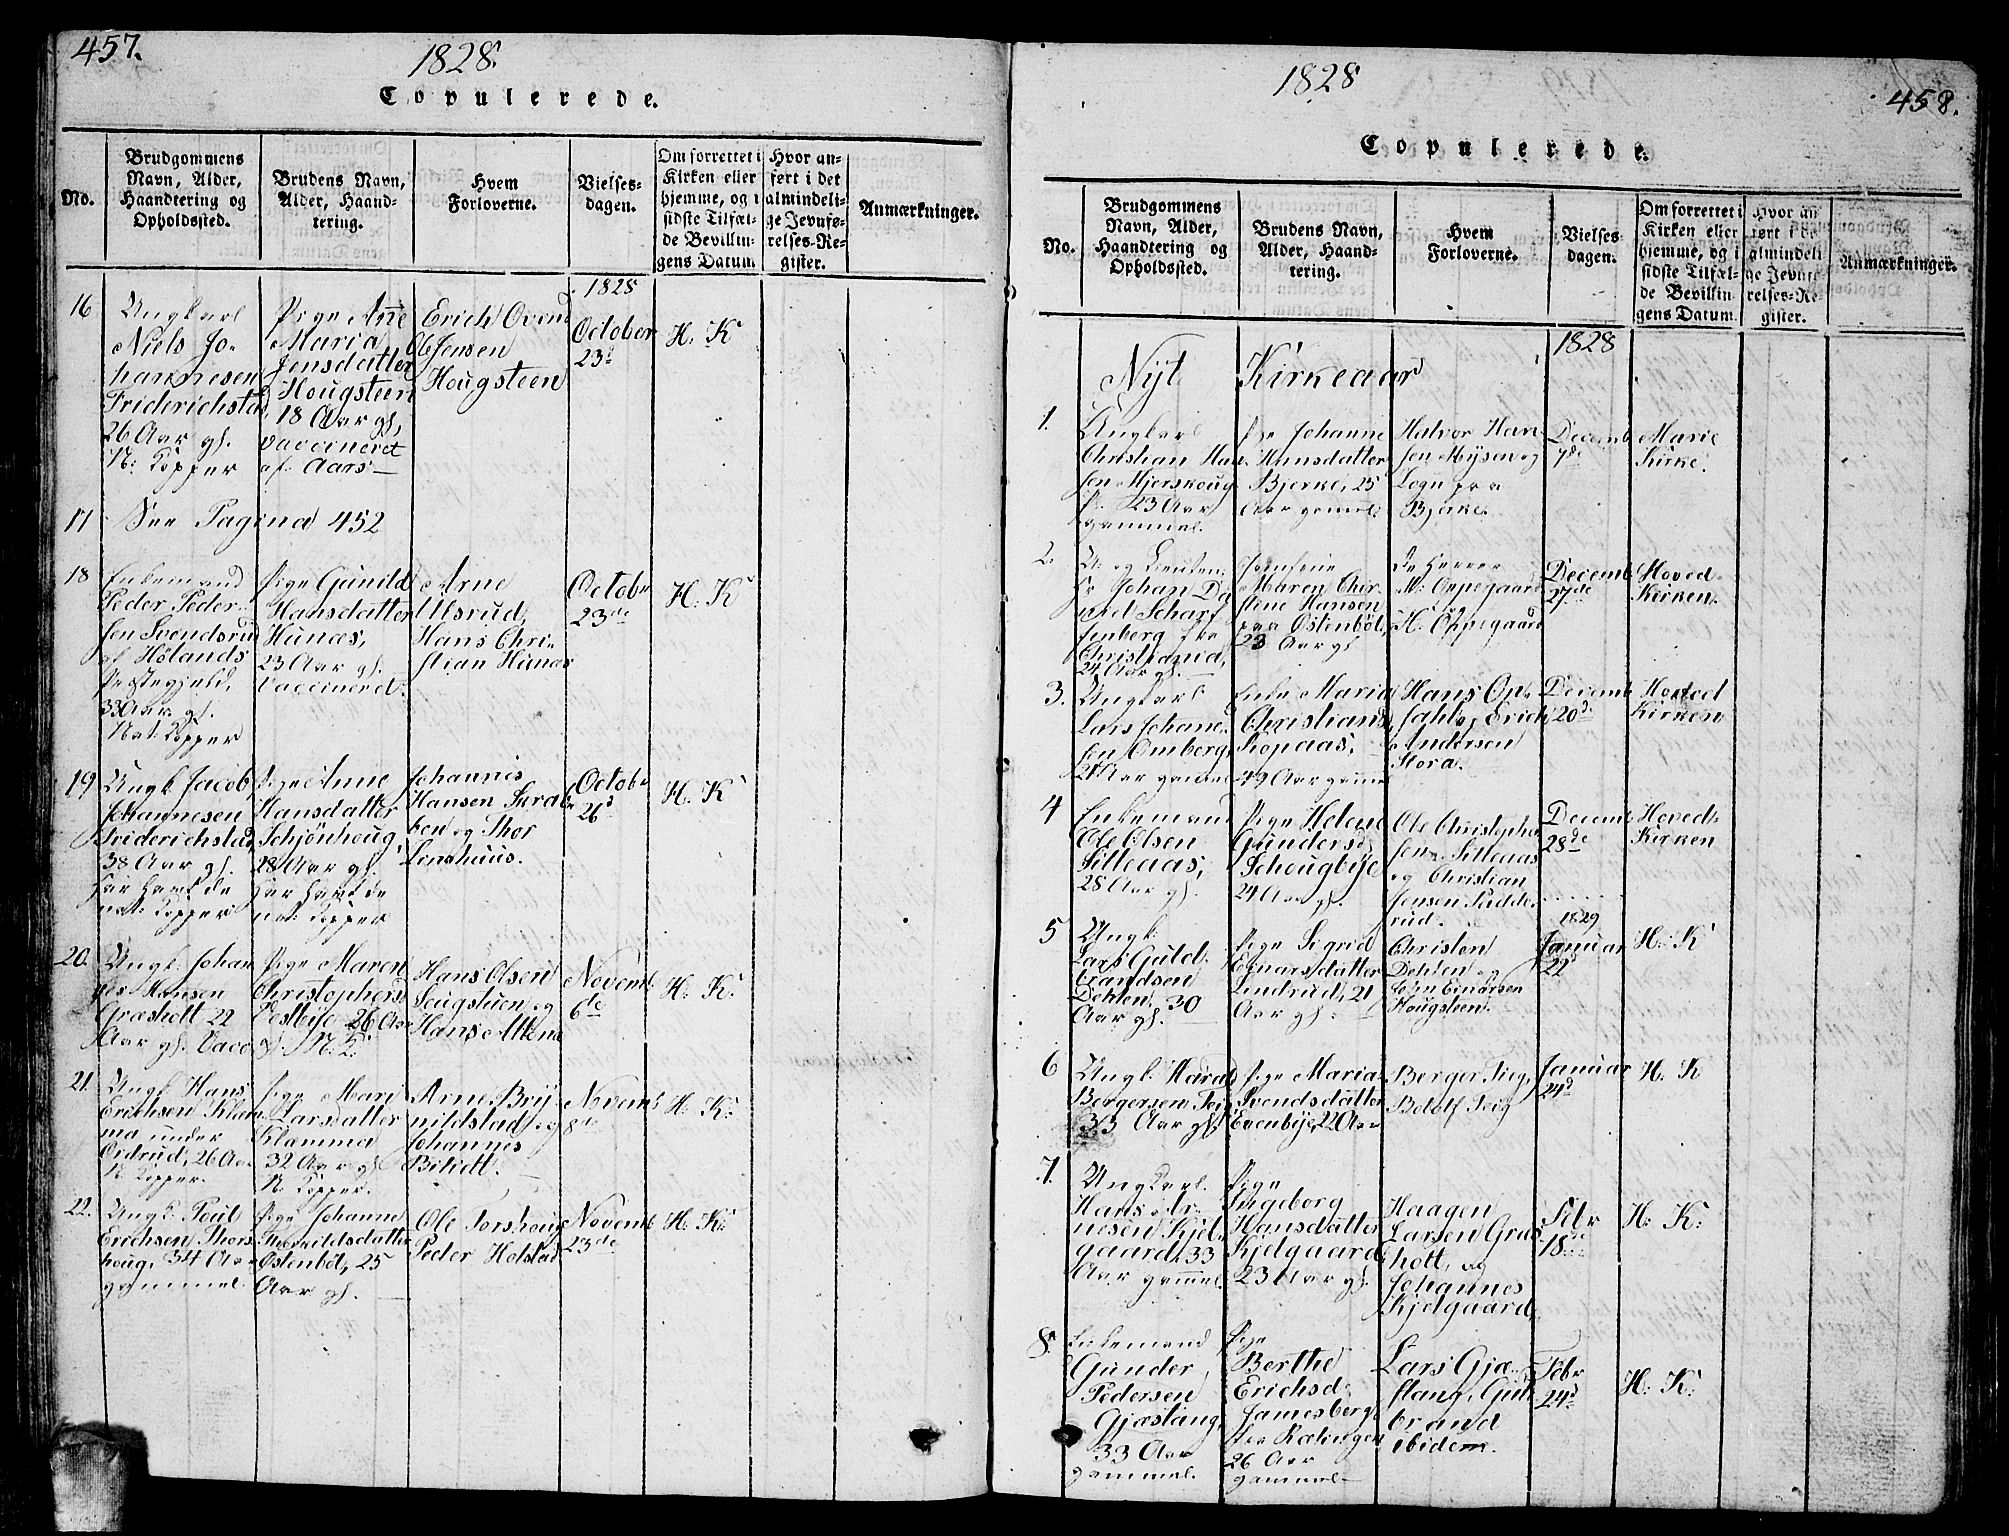 457.
1828.
Copulerede.
No.
Brudgommens
Navn, Alder,
Haandtering og
Opholdssted.
Brudens Navn,
Alder, Haand-
tering.
Hvem
Forloverne.
Vielses-
dagen.
Om forrettet i
Kirken eller
hjemme, og i
sidste Tilfæl-
de Bevillin-
gens Datum.
Hvor an-
ført i det
almindeli-
ge Jevnfø-
relses-Re-
gister.
Anmærkninger.
16
Ungkarl
Niels Jo-
hannesen
Friderichstad
26 Aar gl.
N: Kopper
Pige Añe
Maria
Jensdatter
Hougsteen
18 Aar gl,
vaccineret
af Aars
Erich Oven
Ole Jensen
Hougsteen
1828
October
23d
H. K
17
See Pagina 452
18
Enkemand
Peder Peder-
sen Svendsrud
af Hølands
Præstegjeld,
33 Aar gl.
Nat: Kopper
Pige Gunild
Hansdatter
Hunæs,
23 Aar gl.
Vaccineret.
Arne
Ulsrud,
Hans Chri-
stian Hunæs
Octobr
23de
H. K
19
Ungk. Jacob
Johannesen
Friderichstad
38 Aar gl.
har havt de
nat: Kopper
Pige Anne
Hansdatter
Schjønhoug,
28 Aar gl.
har havt de
nat: Kopper
Johannis
Hansen
og Thor
Lenshuus.
Octobr
26d
H. K
20.
Ungk. Johan
nes Hansen
Græsholt 22
Aar gl. Vacc
Pige Maren
Christophersd
Vestbye 26 Aar
gl. N. K:
Hans Olsen
Sougstuen og
Hans
Novemb
6te
H. K.
21.
Ungk Hans
Erichsen Klam
ma under
Ordrud, 26 Aar
N. Kopper.
Pige Mari
Larsdatter
Klamma
32 Aar gl
N. Kopper.
Arne Bryn
nildstad og
Johannes
Bilidt.
Novemb
8de
H. K.
22.
Ungk: Poul
Erichsen Thors
houg, 34 Aar
gammel
Pige Johanne
Thorkildsdatter
Østenbøl, 25
Aar gl.
Ole Torshoug
Peder Holstad
Novemb
23de
H. K.
1828
458.
Copulerede.
No.
Brudgommens
Navn, Alder,
Haandtering og
Opholdssted.
Brudens Navn,
Alder, Haand-
tering.
Hvem
Forloverne.
Vielses-
dagen.
Om forrettet i
Kirken eller
hjemme, og i
sidste Tilfæl-
de Bevillin-
gens Datum.
Hvor an
ført i de
almindeli
ge Jevnfø
relses-Re-
gister.
Anmærkninger.
1828
Nyt Kirkeaar
1.
Ungkarl
Christian Han
sen Mjerskoug
23 Aar
gammel.
Pge Johanne
Hansdatter
Bjerke, 25
Aar gamel
Halvor Han-
sen Mysen og
Bjerke.
Decemb
7de
Marie
Kirke.
2.
Johan Da
vid Scharf
fenberg fra
Christiania,
24 Aar gl.
Jomfrue
Maren Chir-
stene Hansen
paa Østenbøl,
23 Aar gl
De Herrer
M. Oppegaard
H. Oppegaard
Decemb
27de
Hoved-
Kirken.
3.
Ungkarl
Lars Johane-
sen Omberg
Aar gammel
Enke Maria
Christiansd
Kopaas,
49 Aar gamel
Hans Op-
sahl og Erich
Andersen
Stora.
Decemb
20d
Hoved
Kirken
4
Enkemand
Ole Olsen
Silleaas,
28 Aar gl.
Pige Helene
Gundersd
Schougbye
24 Aar gl.
Ole Christopher
sen Silleaas
og Christian
Jensen Sudde-
rud.
Decemb
28de
Hoved-
Kirken
5
Ungk.
Lars Guld-
brandsen
Dehlen, 30
Aar gl.
Pige Sigrid
Einarsdatter
Lindrud, 21
Aar gl.
Christen
Dehlen og
Einarsen
Hougsteen.
1829
Januar
22d
H. K
6
Ungk. Harald
Bergersen Teig
33 Aar gl.
Pige Maria
Svendsdatter
Evenbye, 22 Aar
Berger Teig,
Bdolf Teig
Januar
24d
H. K
7.
Ungkarl.
Hans Ar-
nesen Kjel-
gaard, 33
Aar gammel.
Pige
Ingeborg
Hansdatter
Kjelgaard,
23 Aar gl.
Haagen
Larsen Græs
holt, og
Johannes
Kjelgaard,
Febr
18de
H. K:
8.
Enkemand
Gunder
Pedersen
Gjæstang,
33 Aar
gammel.
Pige
Berthe
Erichsd.
Jamesberg
fra Rælingen
26 Aar
gammel
Lars Gjæ-
stang, Gul-
brand
ibidem.
Febr
24d
H: K: